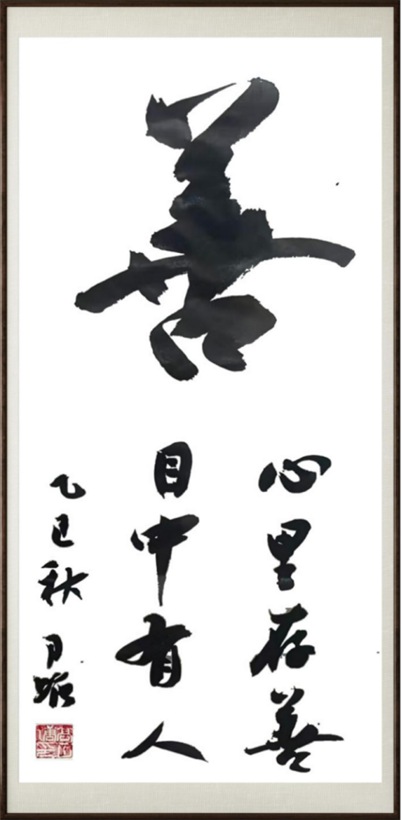 善
心里存善
目中有人
乙巳秋月